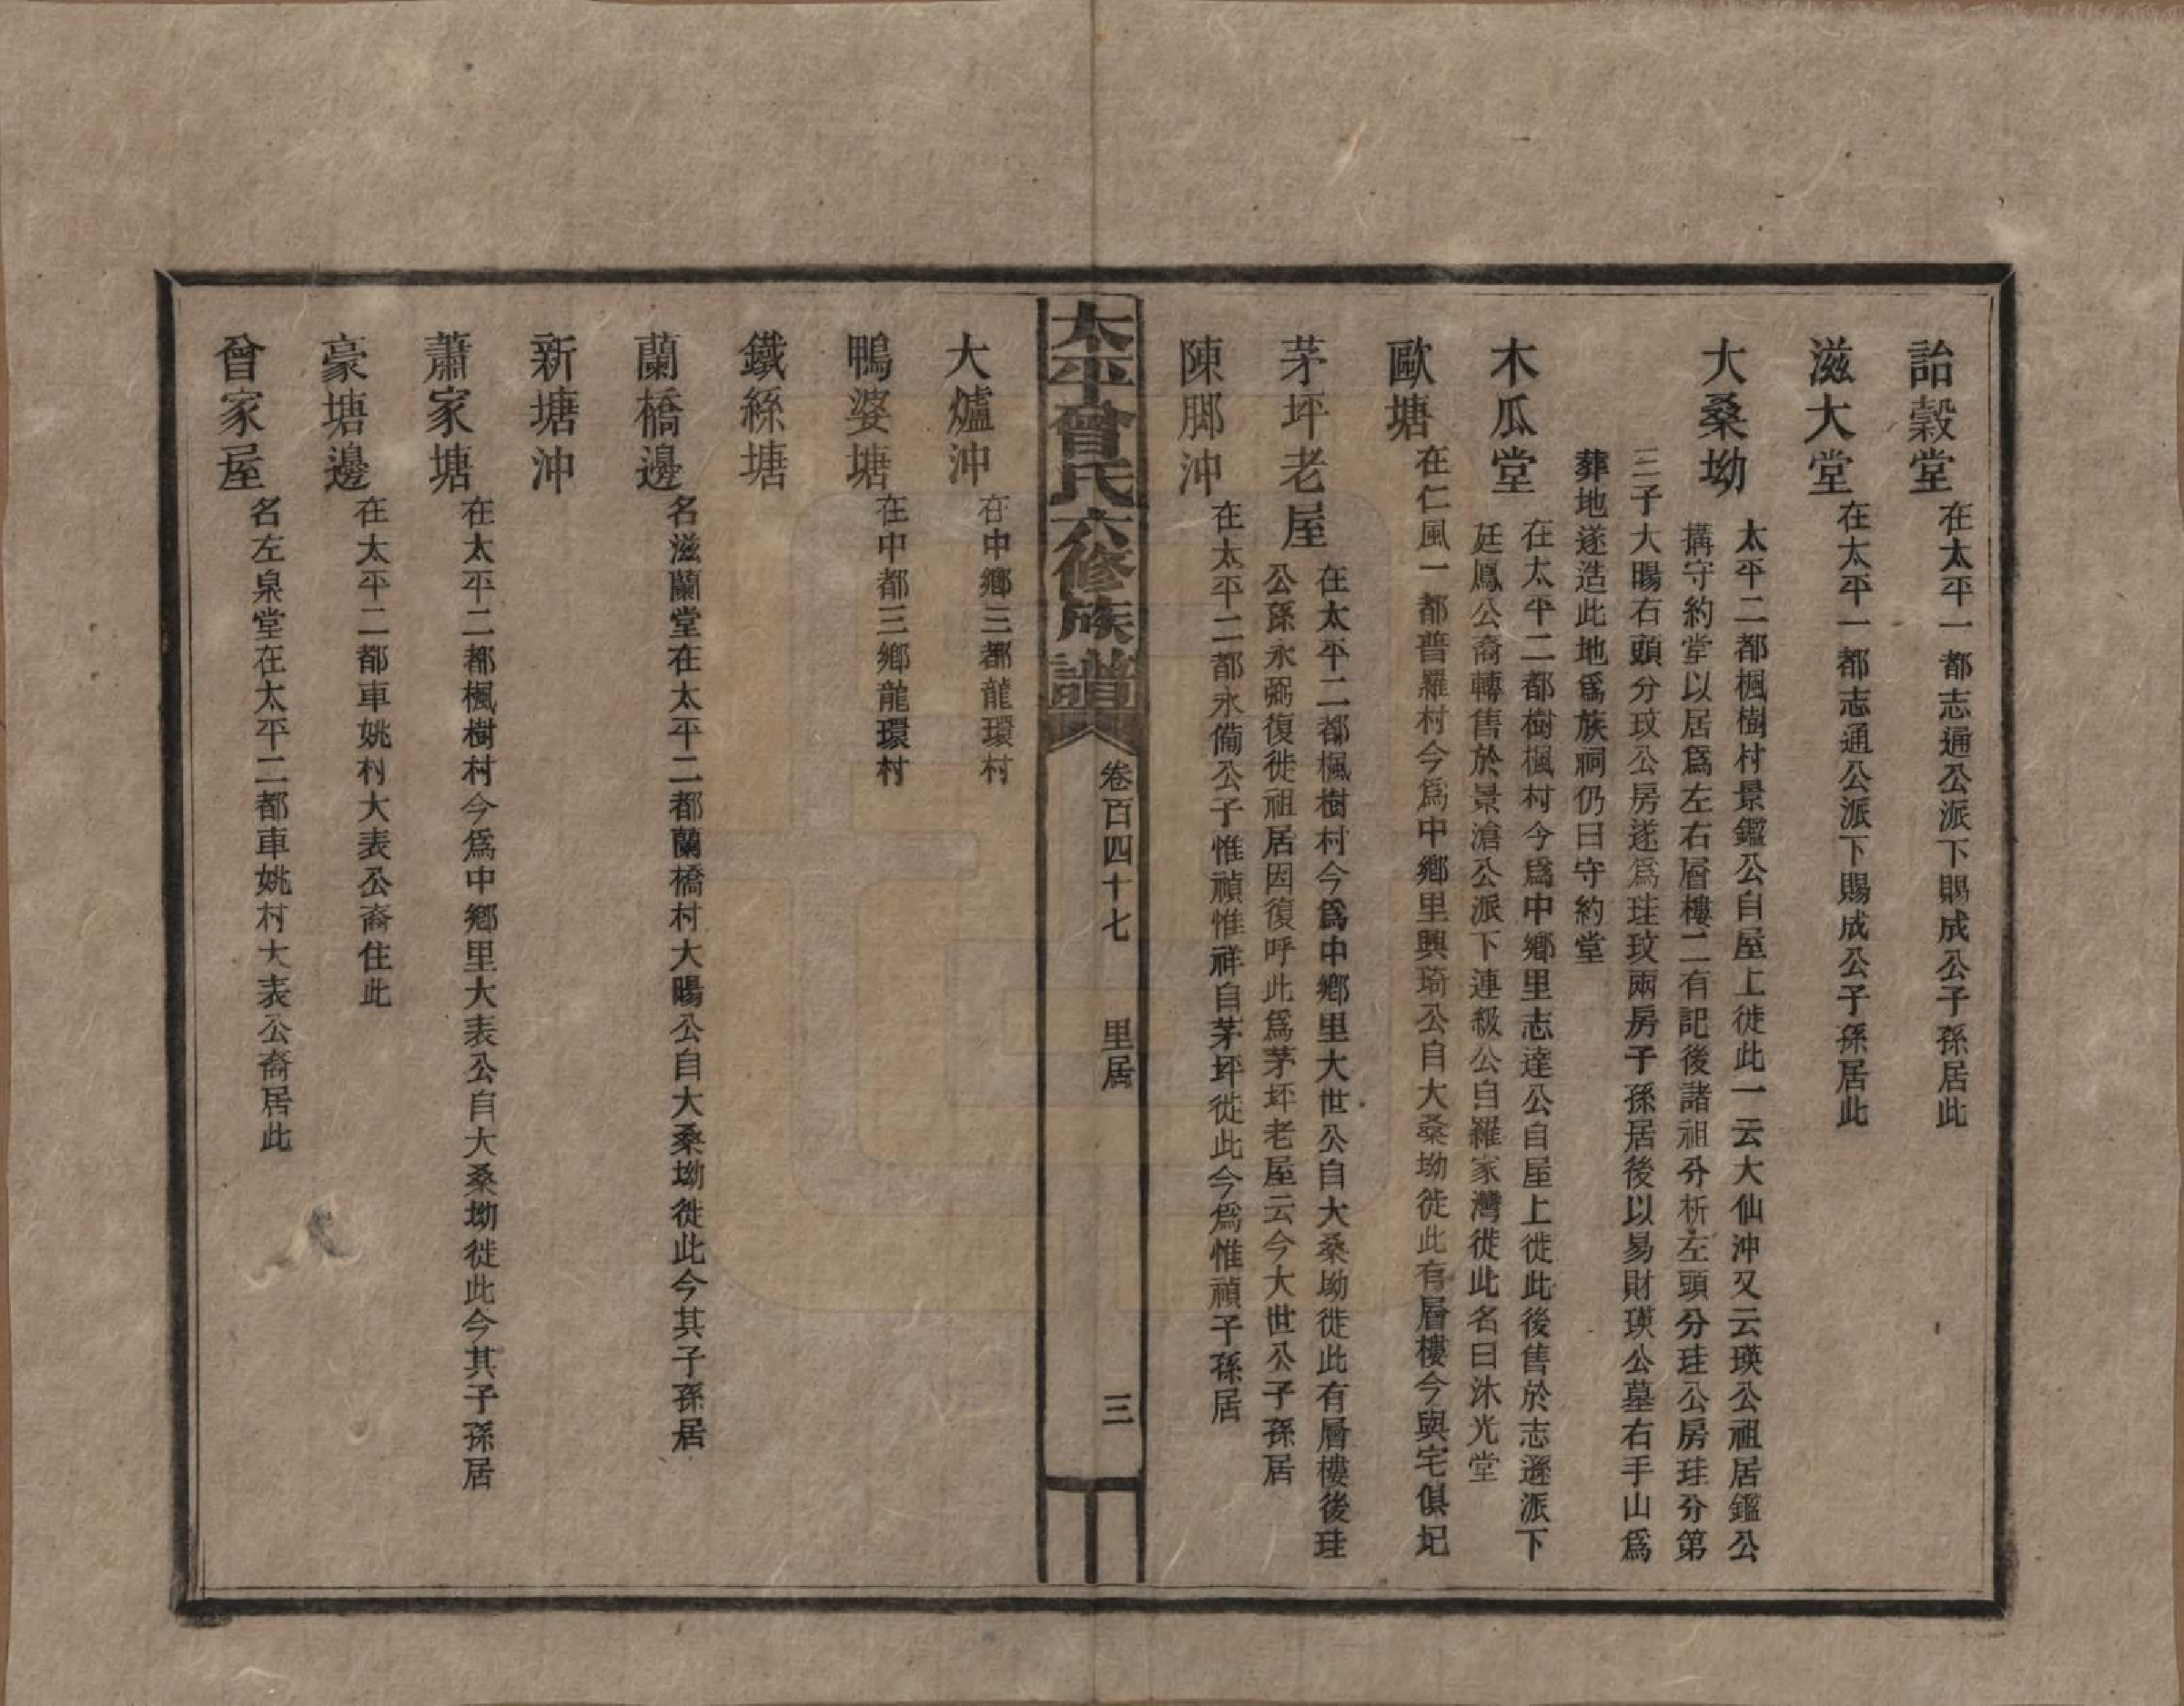 詒穀堂
在太平一都志通公派下賜成公子孫居此
滋大堂
在太平一都志通公派下賜成公子孫居此
大桑坳
太平二都楓樹村景鑑公自屋上徙此一云大仙沖又云瑛公祖居鑑公
搆守約堂以居爲左右層樓二有記後諸祖分析左頭分珪公房珪分第
三子大暘右頭分玟公房遂爲珪玟兩房子孫居後以易財瑛公墓右手山爲
葬地遂造此地爲族祠仍曰守約堂
木瓜堂
在太平二都樹楓村今爲中鄉里志達公自屋上徙此後售於志遜派下
廷鳳公裔轉售於景滄公派下連級公自羅家灣徙此名曰沐光堂
歐塘
在仁風一都普羅村今爲中鄉里興琦公自大桑坳徙此有層樓今與宅俱圮
茅坪老屋
在太平二都楓樹村今爲中鄉里大世公自大桑坳徙此有層樓後珪
公孫永弼復徙祖居因復呼此爲茅坪老屋云今大世公子孫居
陳腳沖
在太平二都永備公子惟禎惟祥自茅坪徙此今爲惟禎子孫居
太平曾氏六修族譜
卷百四十七
里居
三
大爐沖
在中鄉三都龍環村
鴨婆塘
在中都三鄉龍環村
鐵絲塘
蘭橋邊
名滋蘭堂在太平二都蘭橋村大暘公自大桑坳徙此今其子孫居
新塘沖
蕭家塘
在太平二都楓樹村今爲中鄉里大表公自大桑坳徙此今其子孫居
豪塘邊
在太平二都車姚村大表公裔住此
曾家屋
名左泉堂在太平二都車姚村大表公裔居此